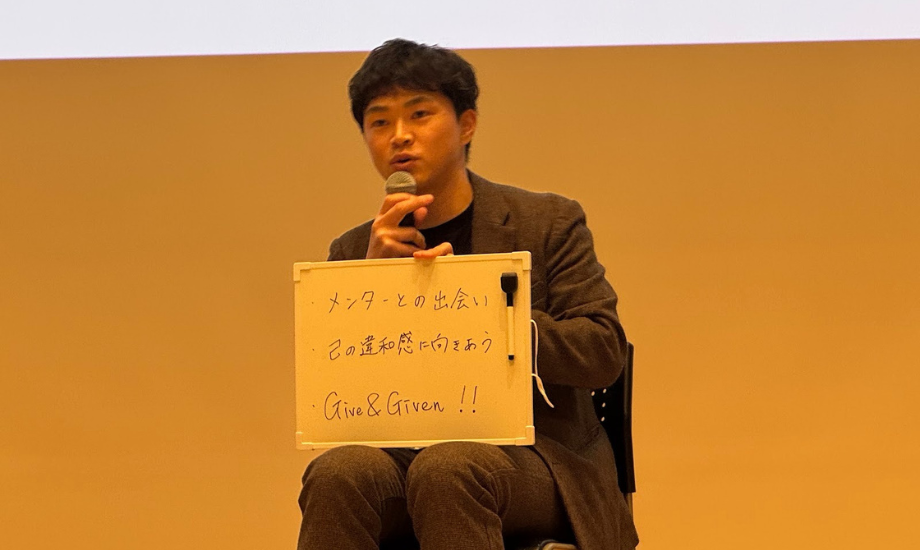 ・メンターとの出会い
・己の違和感に向きあう
・Give&Given!!